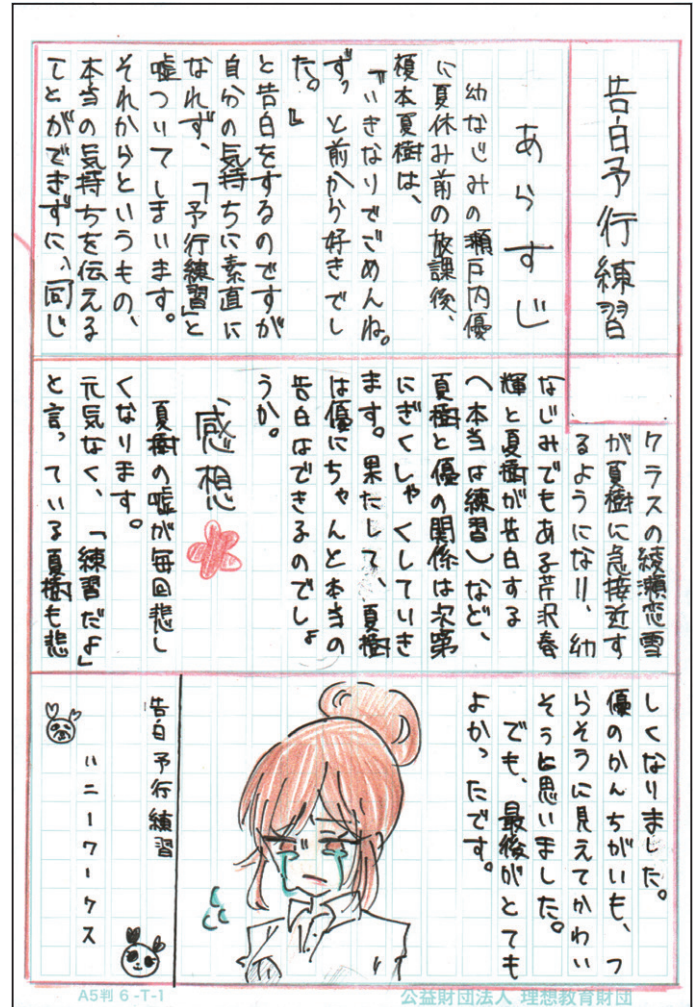 告白予行練習
あらすじ
幼なじみの瀬戸内優
に夏休み前の放課後、
榎本夏樹は、
「いきなりでごめんね。
ずっと前から好きでし
た。」
と告白をするのですが
自分の気持ちに素直に
なれず、「予行練習」と
嘘ついてしまいます。
それからというもの、
本当の気持ちを伝える
ことができずに、同じ
クラスの綾瀬恋雪
が夏樹に急接近す
るようになり、幼
なじみでもある芹沢春
輝と夏樹が告白する
(本当は練習)など、
夏樹と優の関係は次第
にぎくしゃくしていき
ます。果たして、夏樹
は優にちゃんと本当の
告白はできるのでしょ
うか。
感想
夏樹の嘘が毎回悲し
くなります。
元気なく、「練習だよ」
と言っている夏樹も悲
しくなりました。
優のかんちがいも、つ
らそうに見えてかわい
そうと思いました。
でも、最後がとても
よかったです。
告白予行練習
ハニーワークス
A5判 6-T-1
公益財団法人 理想教育財団